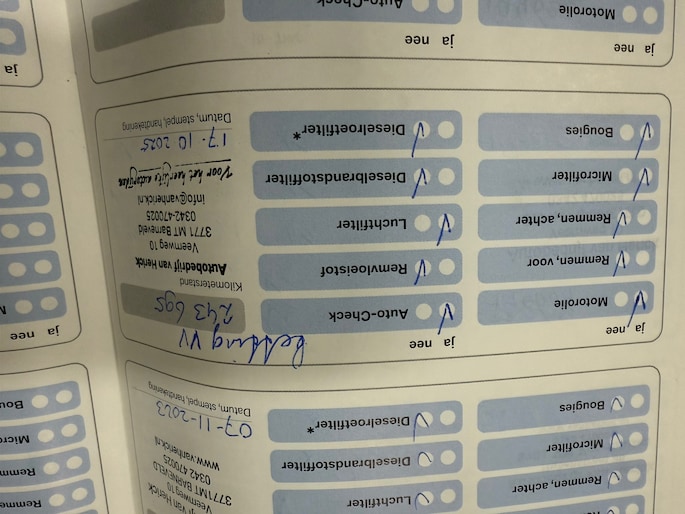 Remmen, achter
Microfilter
Bougies
Luchtfilter
Dieselbrandstoffilter
Dieselroetfilter*
Van Herick
Veemweg 10
3771 MT BARNEVELD
0342 470025
www.vanherick.nl
07-11-2023
Datum, stempel, handtekening
Remme
Remme
Micro
Bou
ja nee
Motorolie
Remmen, voor
Remmen, achter
Microfilter
Bougies
ja nee
Auto-Check
Remvloeistof
Luchtfilter
Dieselbrandstoffilter
Dieselroetfilter*
243 695
Kilometerstand
Autobedrijf van Herick
Veemweg 10
3771 MT Barneveld
0342-470025
info@vanherick.nl
Voor het heerlijke autorijden
17-10-2025
Datum, stempel, handtekening
ja nee
M
ja nee
Motorolie
ja nee
Auto-Check
ja